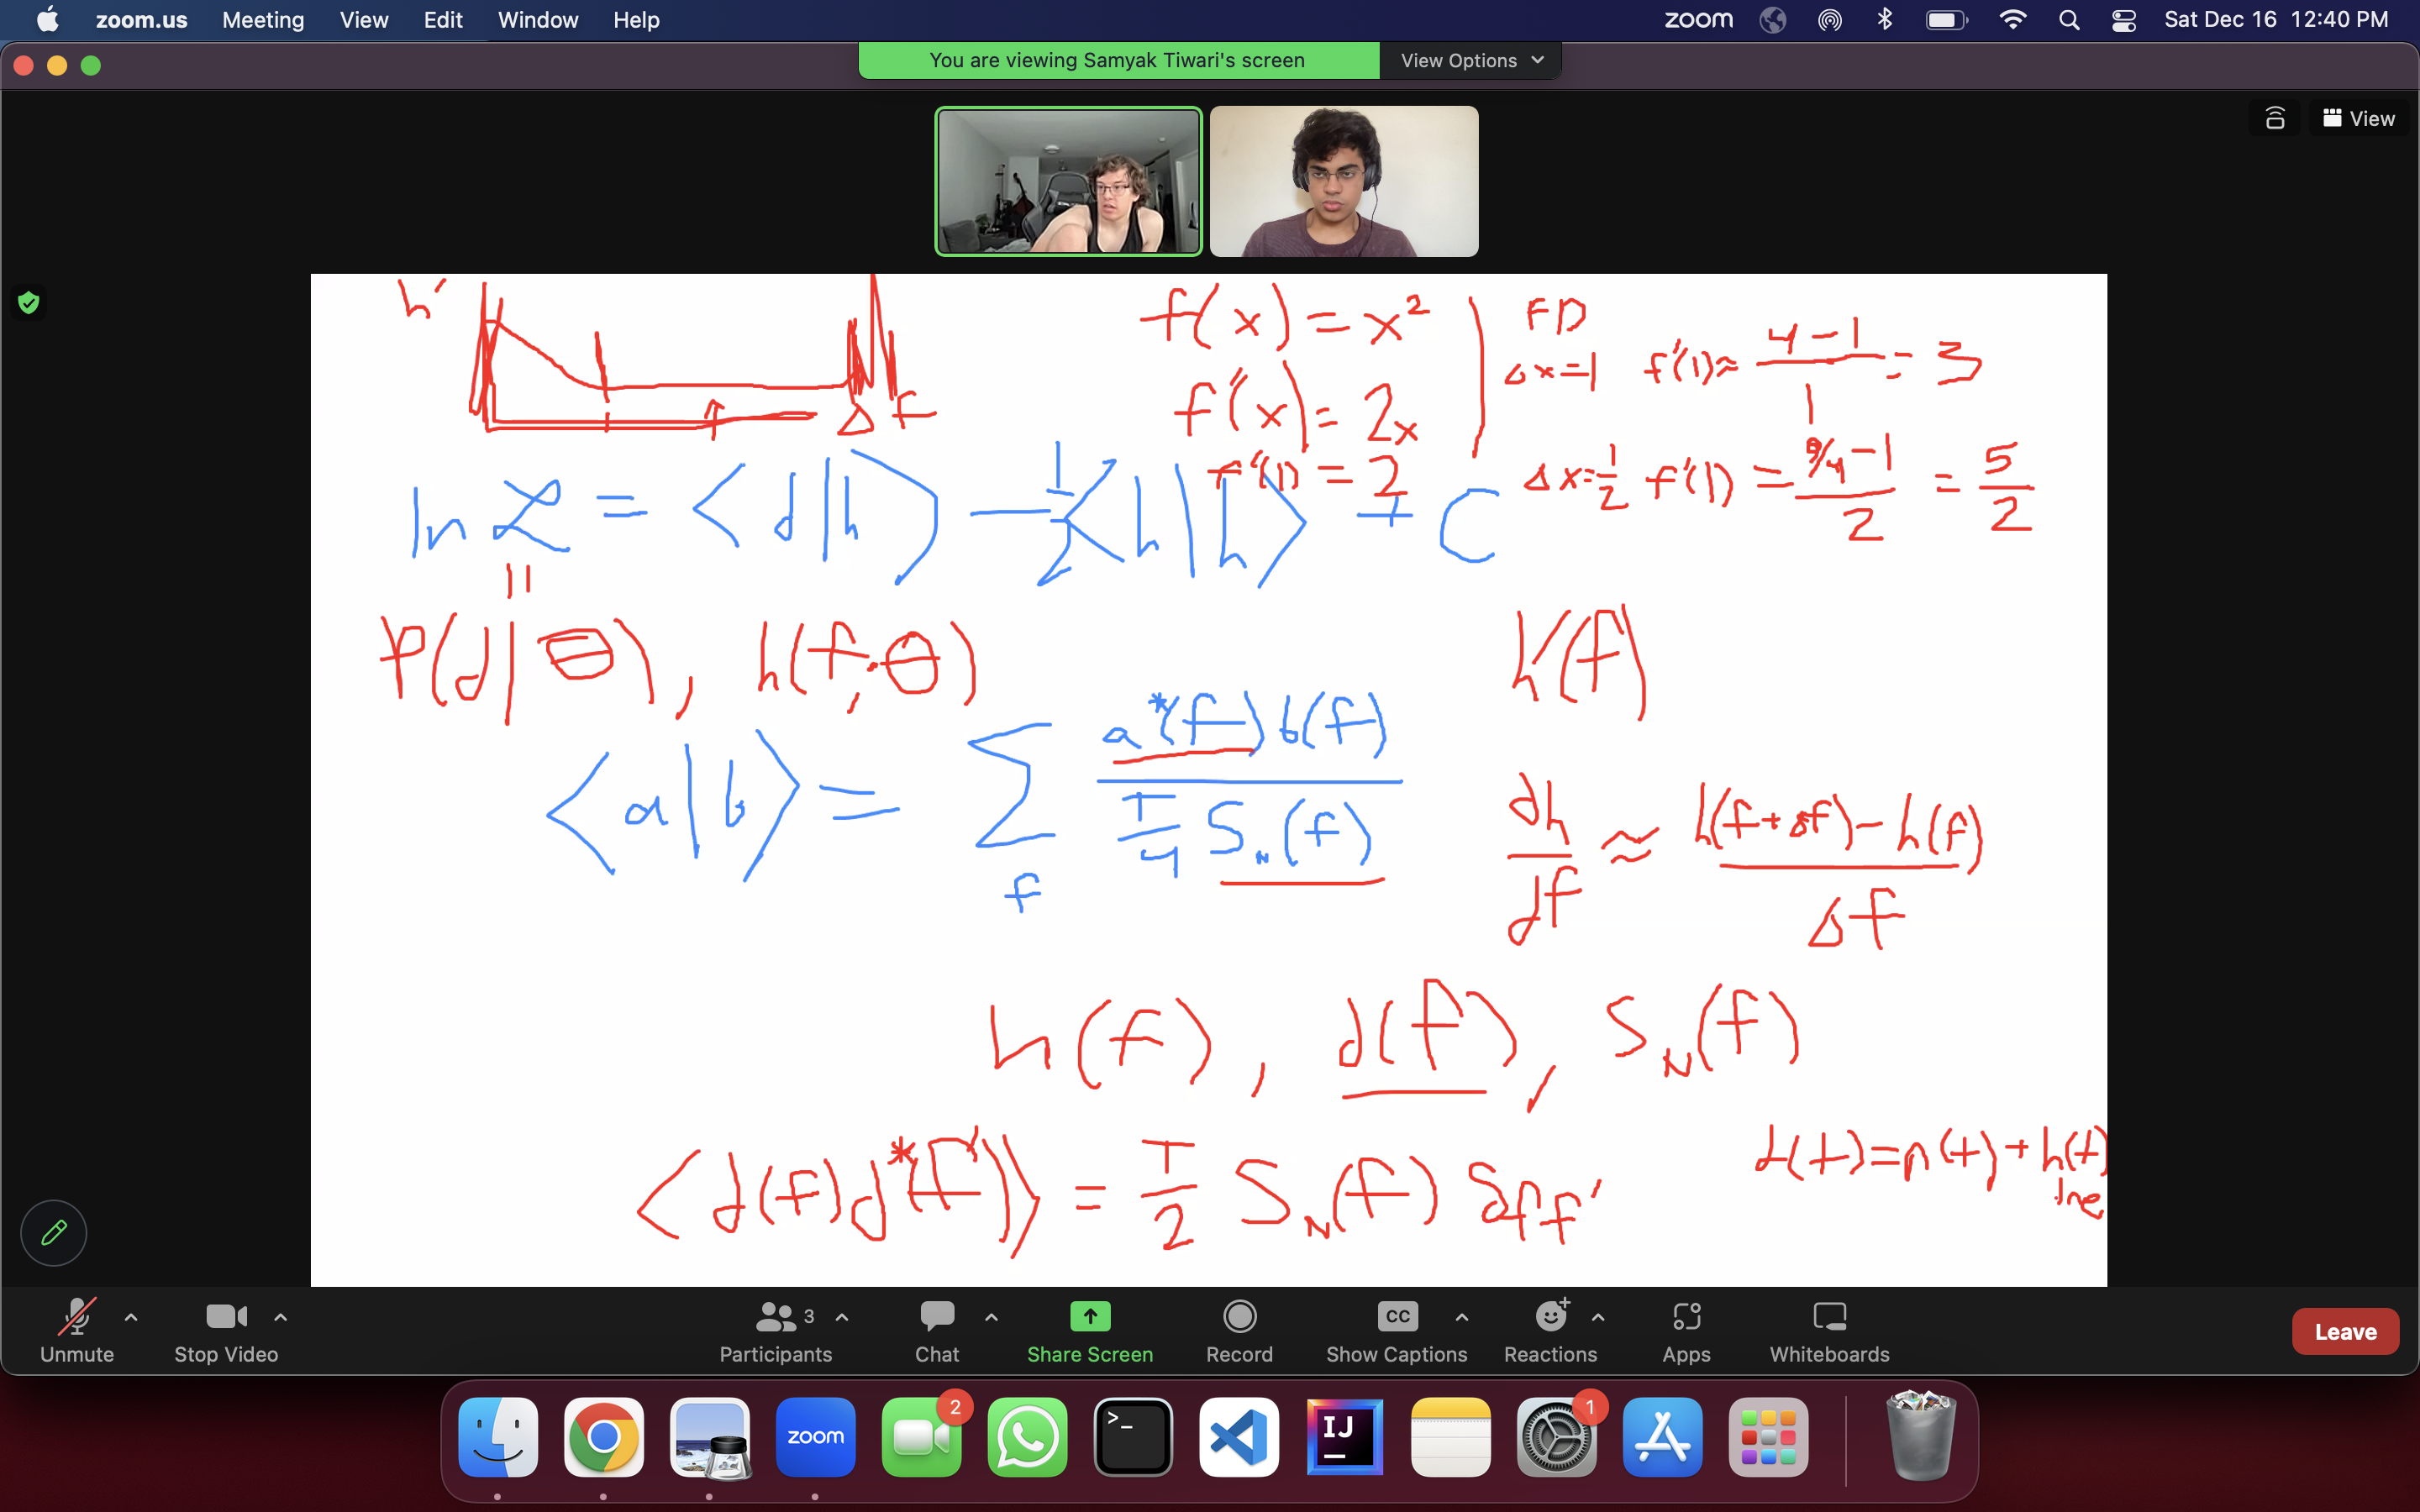 zoom.us Meeting View Edit Window Help zoom Sat Dec 16 12:40 PM
You are viewing Samyak Tiwari's screen View Options
View
h'
Δf
f(x) = x²
FD
Δx=1 f'(1)≈ 4-1/1 = 3
f'(x) = 2x
f'(1) = 2
Δx=1/2 f'(1) = 9/4-1/2 = 5/2
ln ℒ = <d|h> - 1/2 <h|h> + C
P(d|θ), h(f;θ)
h'(f)
<a|b> = Σ_f a*(f)b(f) / T/4 S_N(f)
dh/df ≈ h(f+Δf) - h(f) / Δf
h(f), d(f), S_N(f)
d(t)=n(t)+h(t)
<d(f)d*(f')> = T/2 S_N(f) δff'
Unmute Stop Video Participants 3 Chat Share Screen Record CC Show Captions Reactions Apps Whiteboards Leave
zoom 2 >_ IJ 1